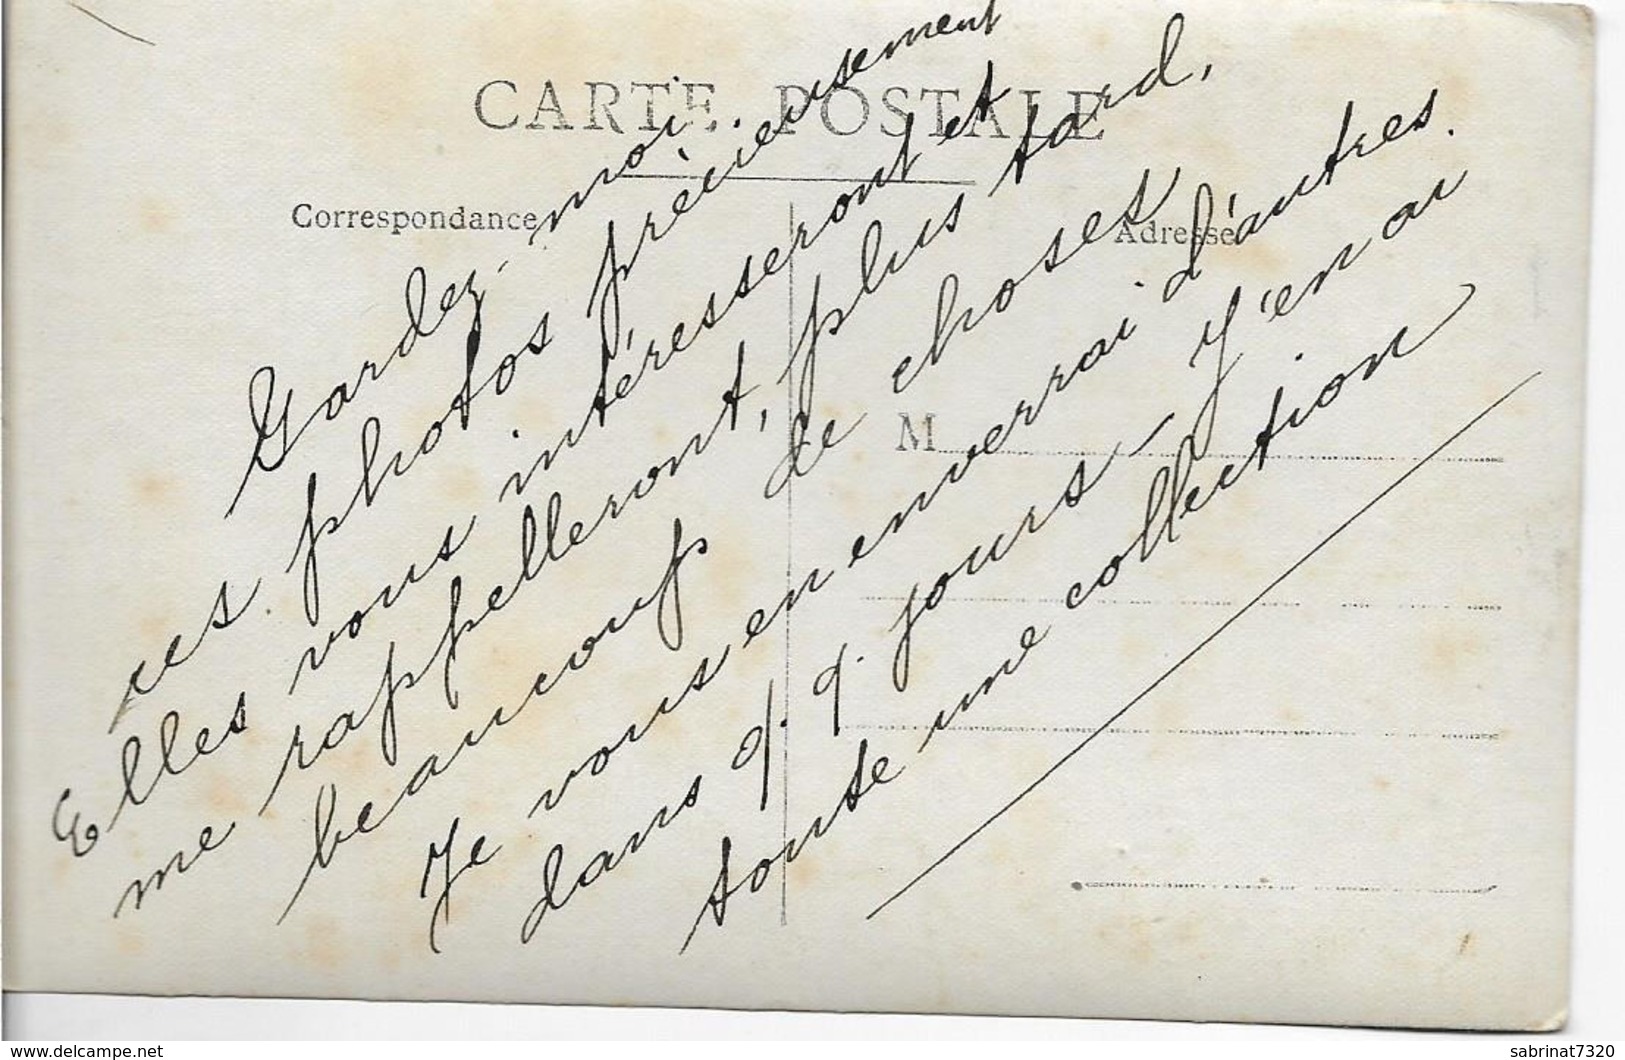 CARTE POSTALE
Correspondance
Adresse
M
Gardez-moi
ces photos précieusement
Elles vous intéresseront et
me rappelleront, plus tard,
beaucoup de choses
Je vous en enverrai d'autres
dans q.q. jours - J'en ai
toute une collection
delcampe.net
sabrinat7320